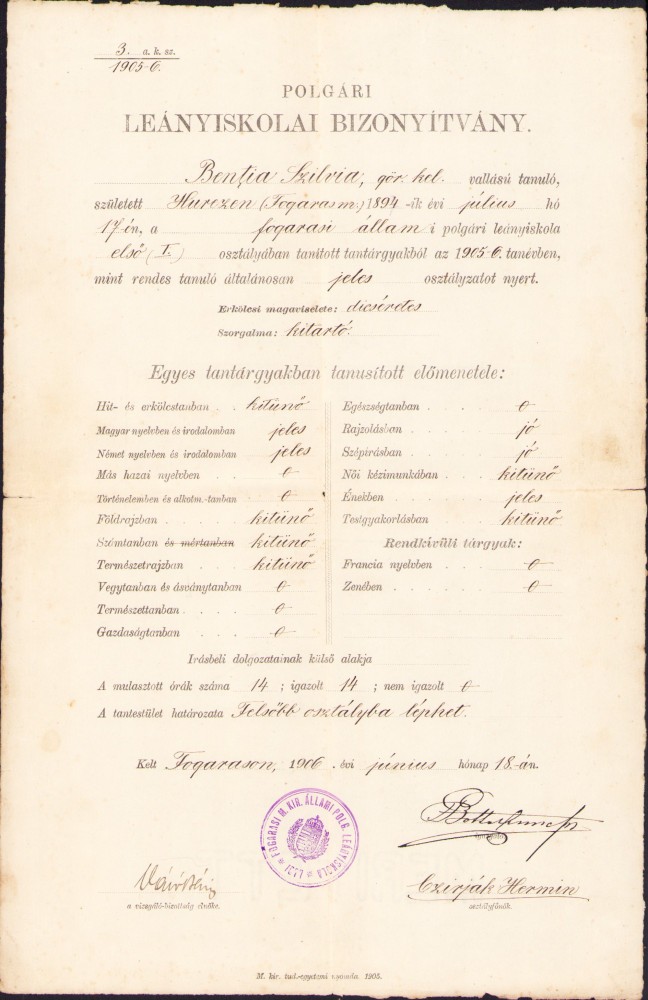 3. a. k. sz.
1905-6.
POLGÁRI
LEÁNYISKOLAI BIZONYÍTVÁNY.
Benția Szilvia, gör. kel. vallású tanuló,
született Hurezen (Fogarasm.) 1894-ik évi július hó
17-én, a fogarasi állami polgári leányiskola
első (I.) osztályában tanított tantárgyakból az 1905-6. tanévben,
mint rendes tanuló általánosan jeles osztályzatot nyert.
Erkölcsi magaviselete: dicséretes
Szorgalma: kitartó.
Egyes tantárgyakban tanusított előmenetele:
Hit- és erkölcstanban . . kitünő
Magyar nyelvben és irodalomban jeles
Német nyelvben és irodalomban jeles
Más hazai nyelvben . . . 0
Történelemben és alkotm.-tanban . 0
Földrajzban . . . . kitünő
Számtanban és mértanban kitünő
Természetrajzban . . . kitünő
Vegytanban és ásványtanban 0
Természettanban . . . . 0
Gazdaságtanban . . . . 0
Egészségtanban . . . . 0
Rajzolásban . . . . jó
Szépírásban . . . . jó
Női kézimunkában . . kitünő
Énekben . . . . . jeles
Testgyakorlásban . . . kitünő
Rendkívüli tárgyak:
Francia nyelvben . . . 0
Zenében . . . . . 0
Irásbeli dolgozatainak külső alakja
A mulasztott órák száma 14 ; igazolt 14 ; nem igazolt 0
A tantestület határozata Felsőbb osztályba léphet.
Kelt Fogarason, 1906. évi június hónap 18.-án.
FOGARASI M. KIR. ÁLLAMI POLG. LEÁNYISKOLA
igazgató.
a vizsgáló-bizottság elnöke.
Czirják Hermin
osztályfőnök.
M. kir. tud.-egyetemi nyomda. 1905.